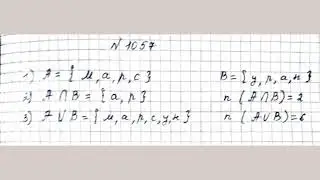 N 1057
1) A = { м, а, р, с } B = { у, р, а, н }
2) A ∩ B = { а, р } n (A∩B) = 2
3) A ∪ B = { м, а, р, с, у, н } n (A∪B) = 6